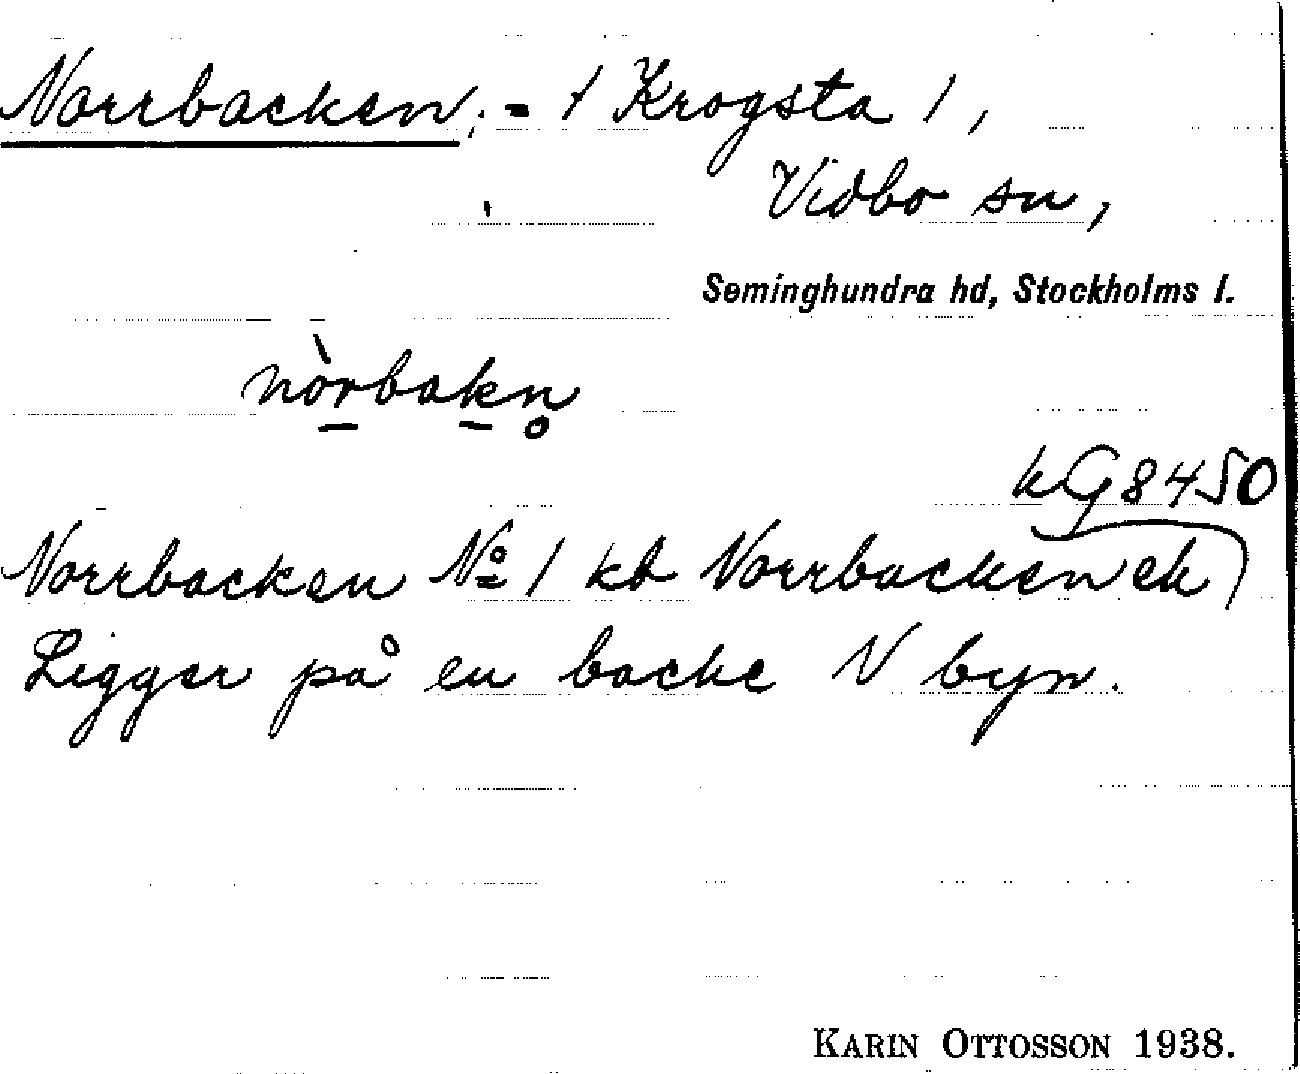 Norrbacken, = 1 Krogsta 1,
Vidbo sn,
Seminghundra hd, Stockholms l.
nòrbakn̥
kG 8450
Norrbacken No 1 kb Norrbacken ek
Ligger på en backe N byn.
KARIN OTTOSSON 1938.